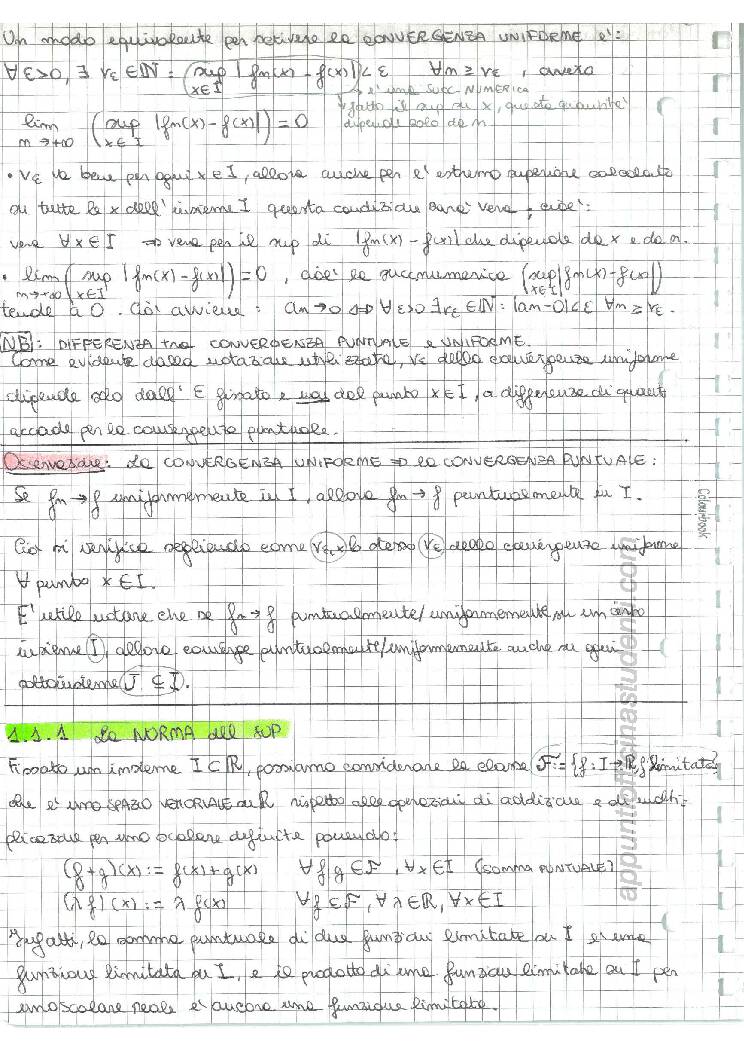 Un modo equivalente per scrivere la CONVERGENZA UNIFORME e':
∀ε>0, ∃ νε ∈ ℕ : (sup x∈I |fn(x) - f(x)|) < ε ∀n ≥ νε , ovvero
→ e' una succ. NUMERICA
fatto il sup su x, questa quantita'
dipende solo da n.
lim n→+∞ (sup x∈I |fn(x) - f(x)|) = 0
• νε va bene per ogni x∈I, allora anche per l'estremo superiore calcolato
su tutte le x dell'insieme I questa condizione sara' vera, cioe':
vera ∀x∈I ⇒ vera per il sup di |fn(x) - f(x)| che dipende da x e da n.
• lim n→+∞ (sup x∈I |fn(x) - f(x)|) = 0 , cioe' la succ numerica (sup x∈I |fn(x) - f(x)|)
tende a 0. Cio' avviene : an → 0 ⇔ ∀ε>0 ∃νε∈ℕ : |an-0|<ε ∀n ≥ νε.
NB: DIFFERENZA tra CONVERGENZA PUNTUALE e UNIFORME.
Come evidente dalla notazione utilizzata, νε della convergenza uniforme
dipende solo dall' ε fissato e non dal punto x∈I, a differenza di quanto
accade per la convergenza puntuale.
Osservazione: La CONVERGENZA UNIFORME ⇒ la CONVERGENZA PUNTUALE :
Se fn → f uniformemente in I, allora fn → f puntualmente in I.
Cio' si verifica scegliendo come νε,x lo stesso νε della convergenza uniforme
∀ punto x∈I.
E' utile notare che se fn → f puntualmente/uniformemente su un certo
insieme I, allora converge puntualmente/uniformemente anche su ogni
sottoinsieme J ⊆ I.
1.1.1 La NORMA del SUP
Fissato un insieme I⊂ℝ, possiamo considerare la classe F:= {f: I→ℝ, f limitata}
che e' uno SPAZIO VETTORIALE su ℝ rispetto alle operazioni di addizione e di molti-
plicazione per uno scalare definite ponendo:
(f+g)(x) := f(x)+g(x) ∀f,g ∈ F , ∀x∈I (SOMMA PUNTUALE)
(λf)(x) := λ f(x) ∀f∈F, ∀λ∈ℝ, ∀x∈I
Infatti, la somma puntuale di due funzioni limitate su I e' una
funzione limitata su I, e il prodotto di una funzione limitata su I per
uno scalare reale e' ancora una funzione limitata.
Colourbook
appuntiofficinastudenti.com